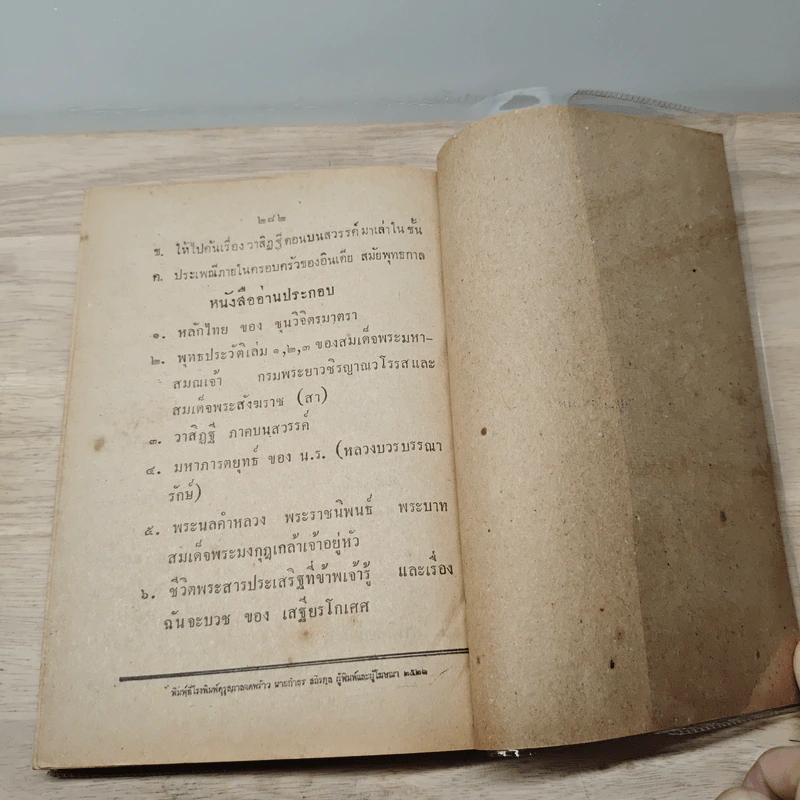 ๒๘๒
ข. ให้ไปค้นเรื่อง วาสิฏฐีตอนบนสวรรค์ มาเล่าใน ชั้น
ค. ประเพณีภายในครอบครัวของอินเดีย สมัยพุทธกาล
หนังสืออ่านประกอบ
๑. หลักไทย ของ ขุนวิจิตรมาตรา
๒. พุทธประวัติเล่ม ๑,๒,๓ ของสมเด็จพระมหา-
สมณเจ้า กรมพระยาวชิรญาณวโรรสและ
สมเด็จพระสังฆราช (สา)
๓. วาสิฏฐี ภาคบนสวรรค์
๔. มหาภารตยุทธ์ ของ น.ร. (หลวงบวรบรรณา
รักษ์)
๕. พระนลคำหลวง พระราชนิพนธ์ พระบาท
สมเด็จพระมงกุฎเกล้าเจ้าอยู่หัว
๖. ชีวิตพระสารประเสริฐที่ข้าพเจ้ารู้ และเรื่อง
ฉันจะบวช ของ เสฐียรโกเศศ
พิมพ์ที่โรงพิมพ์คุรุสภาลาดพร้าว นายกำธร สถิรกุล ผู้พิมพ์และผู้โฆษณา